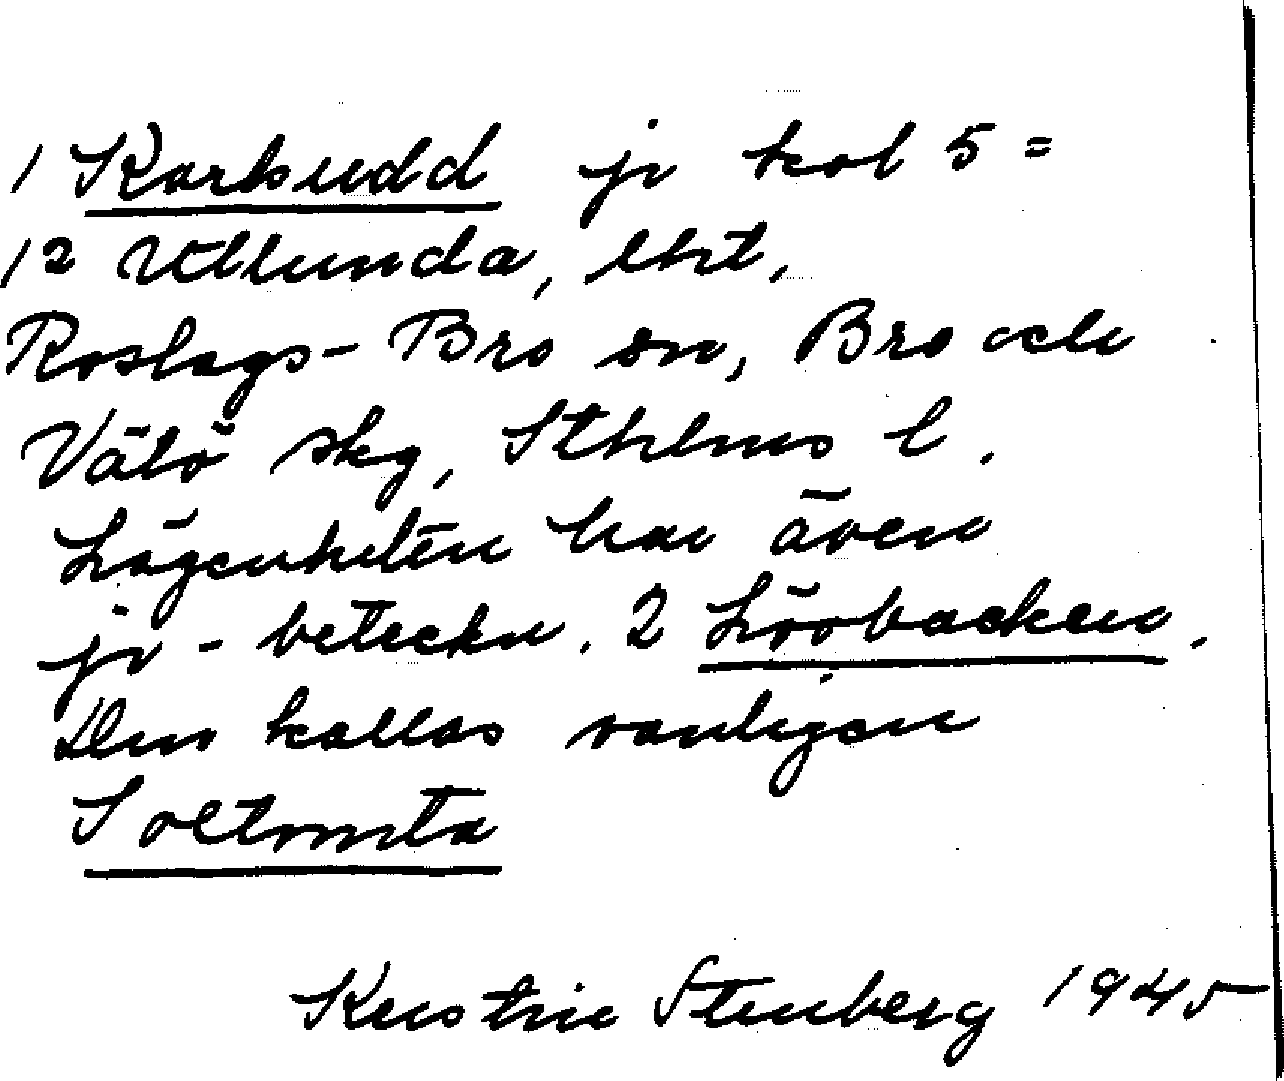 1 Karsudd jr kol 5 =
12 Utlunda, lht,
Roslags-Bro sn, Bro och
Vätö skg, Sthlms l.
Lägenheten har även
jr-beteckn. 2 Lövbacken.
Den kallas vanligen
Soltomta
Kerstin Stenberg 1945